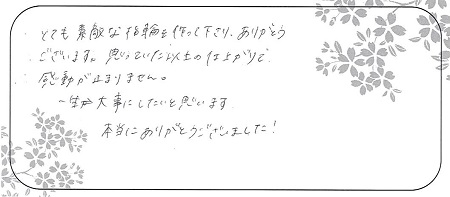 とても素敵な指輪を作って下さり、ありがとう
ございます。思っていた以上の仕上がりで
感動が止まりません。
一生大事にしたいと思います
本当にありがとうございました!